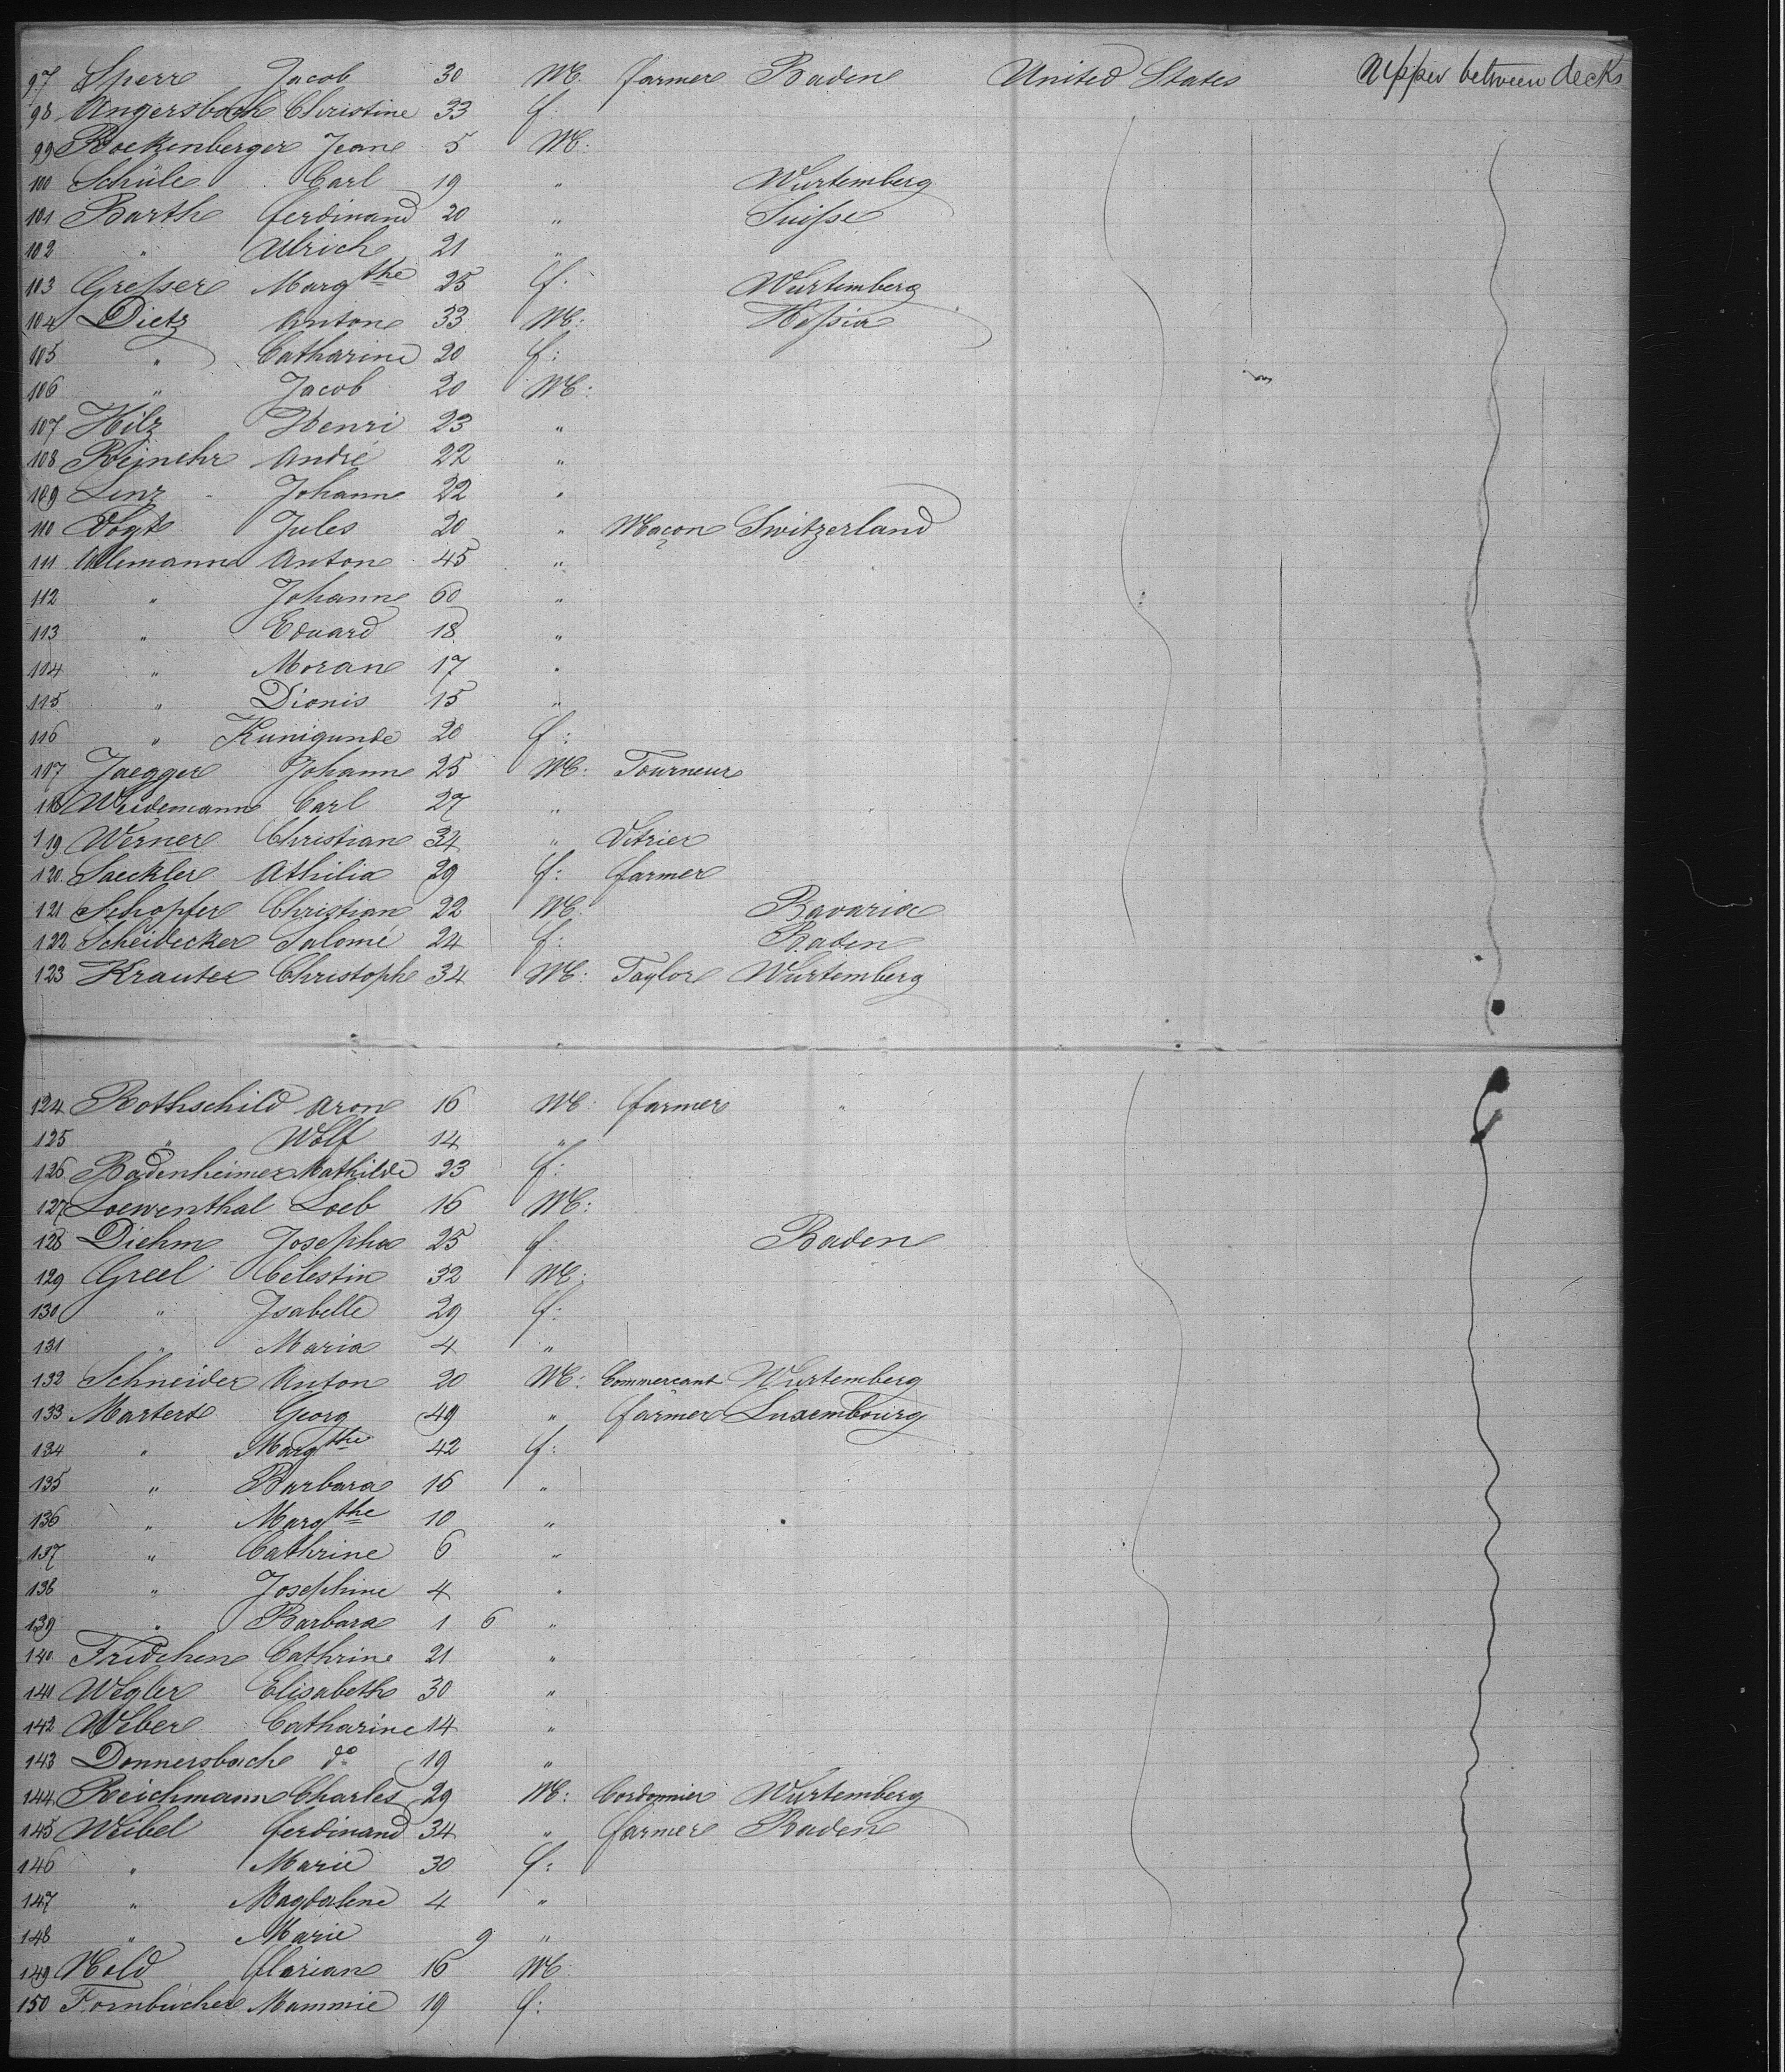 97 Sperr Jacob 30 M. farmer Baden United States Upper between decks
98 Angersbach Christine 33 f.
99 Bockenberger Jean 5 M:
100 Schüle Carl 19 "  Wurtemberg
101 Barth ferdinand 20 " Suisse
102 " Ulrich 21 "
103 Gresser Margthe 25 f: Wurtemberg
104 Dietz Anton 33 M: Hessia
105 " Catharine 20 f:
106 " Jacob 20 M:
107 Hilz Henri 23 "
108 Rejnehr André 22 "
109 Lenz - Johann 22 "
110 Vogt Jules 20 " Maçon Switzerland
111 Allemann Anton 45 "
112 " Johann 60 "
113 " Eduard 18 "
114 " Moran 17 "
115 " Dionis 15 "
116 " Kunigunde 20 f:
117 Jaegger Johann 25 M: Tourneur
118 Weidemann Carl 27 "
119 Werner Christian 34 " Vitrier
120 Saeckler Athilia 29 f: farmer
121 Schopfer Christian 22 M: Bavaria
122 Scheidecker Salomé 24 f: Baden
123 Krauter Christoph 34 M: Taylor Wurtemberg
124 Rothschild Aron 16 M: farmer "
125 " Wolf 14 "
126 Badenheimer Mathilde 23 f:
127 Loewenthal Loeb 16 M:
128 Diehm Josepha 25 f: Baden
129 Greel Célestin 32 M:
130 " Isabelle 29 f:
131 " Maria 4 "
132 Schneider Anton 20 M: Commerçant Wurtemberg
133 Martert Georg 49 " farmer Luxembourg
134 " Margthe 42 f:
135 " Barbara 16 "
136 " Margthe 10 "
137 " Cathrine 6 "
138 " Josephine 4 "
139 " Barbara 1 6 "
140 Fridchen Cathrine 21 "
141 Wegler Elisabeth 30 "
142 Weber Catharine 14 "
143 Donnersbach do 19 "
144 Reichmann Charles 29 M: Cordonnier Wurtemberg
145 Weibel ferdinand 34 " farmer Baden
146 " Marie 30 f:
147 " Magdalene 4 "
148 " Marie 9 "
149 Hold florian 16 M:
150 Fornbucher Mammie 19 f: